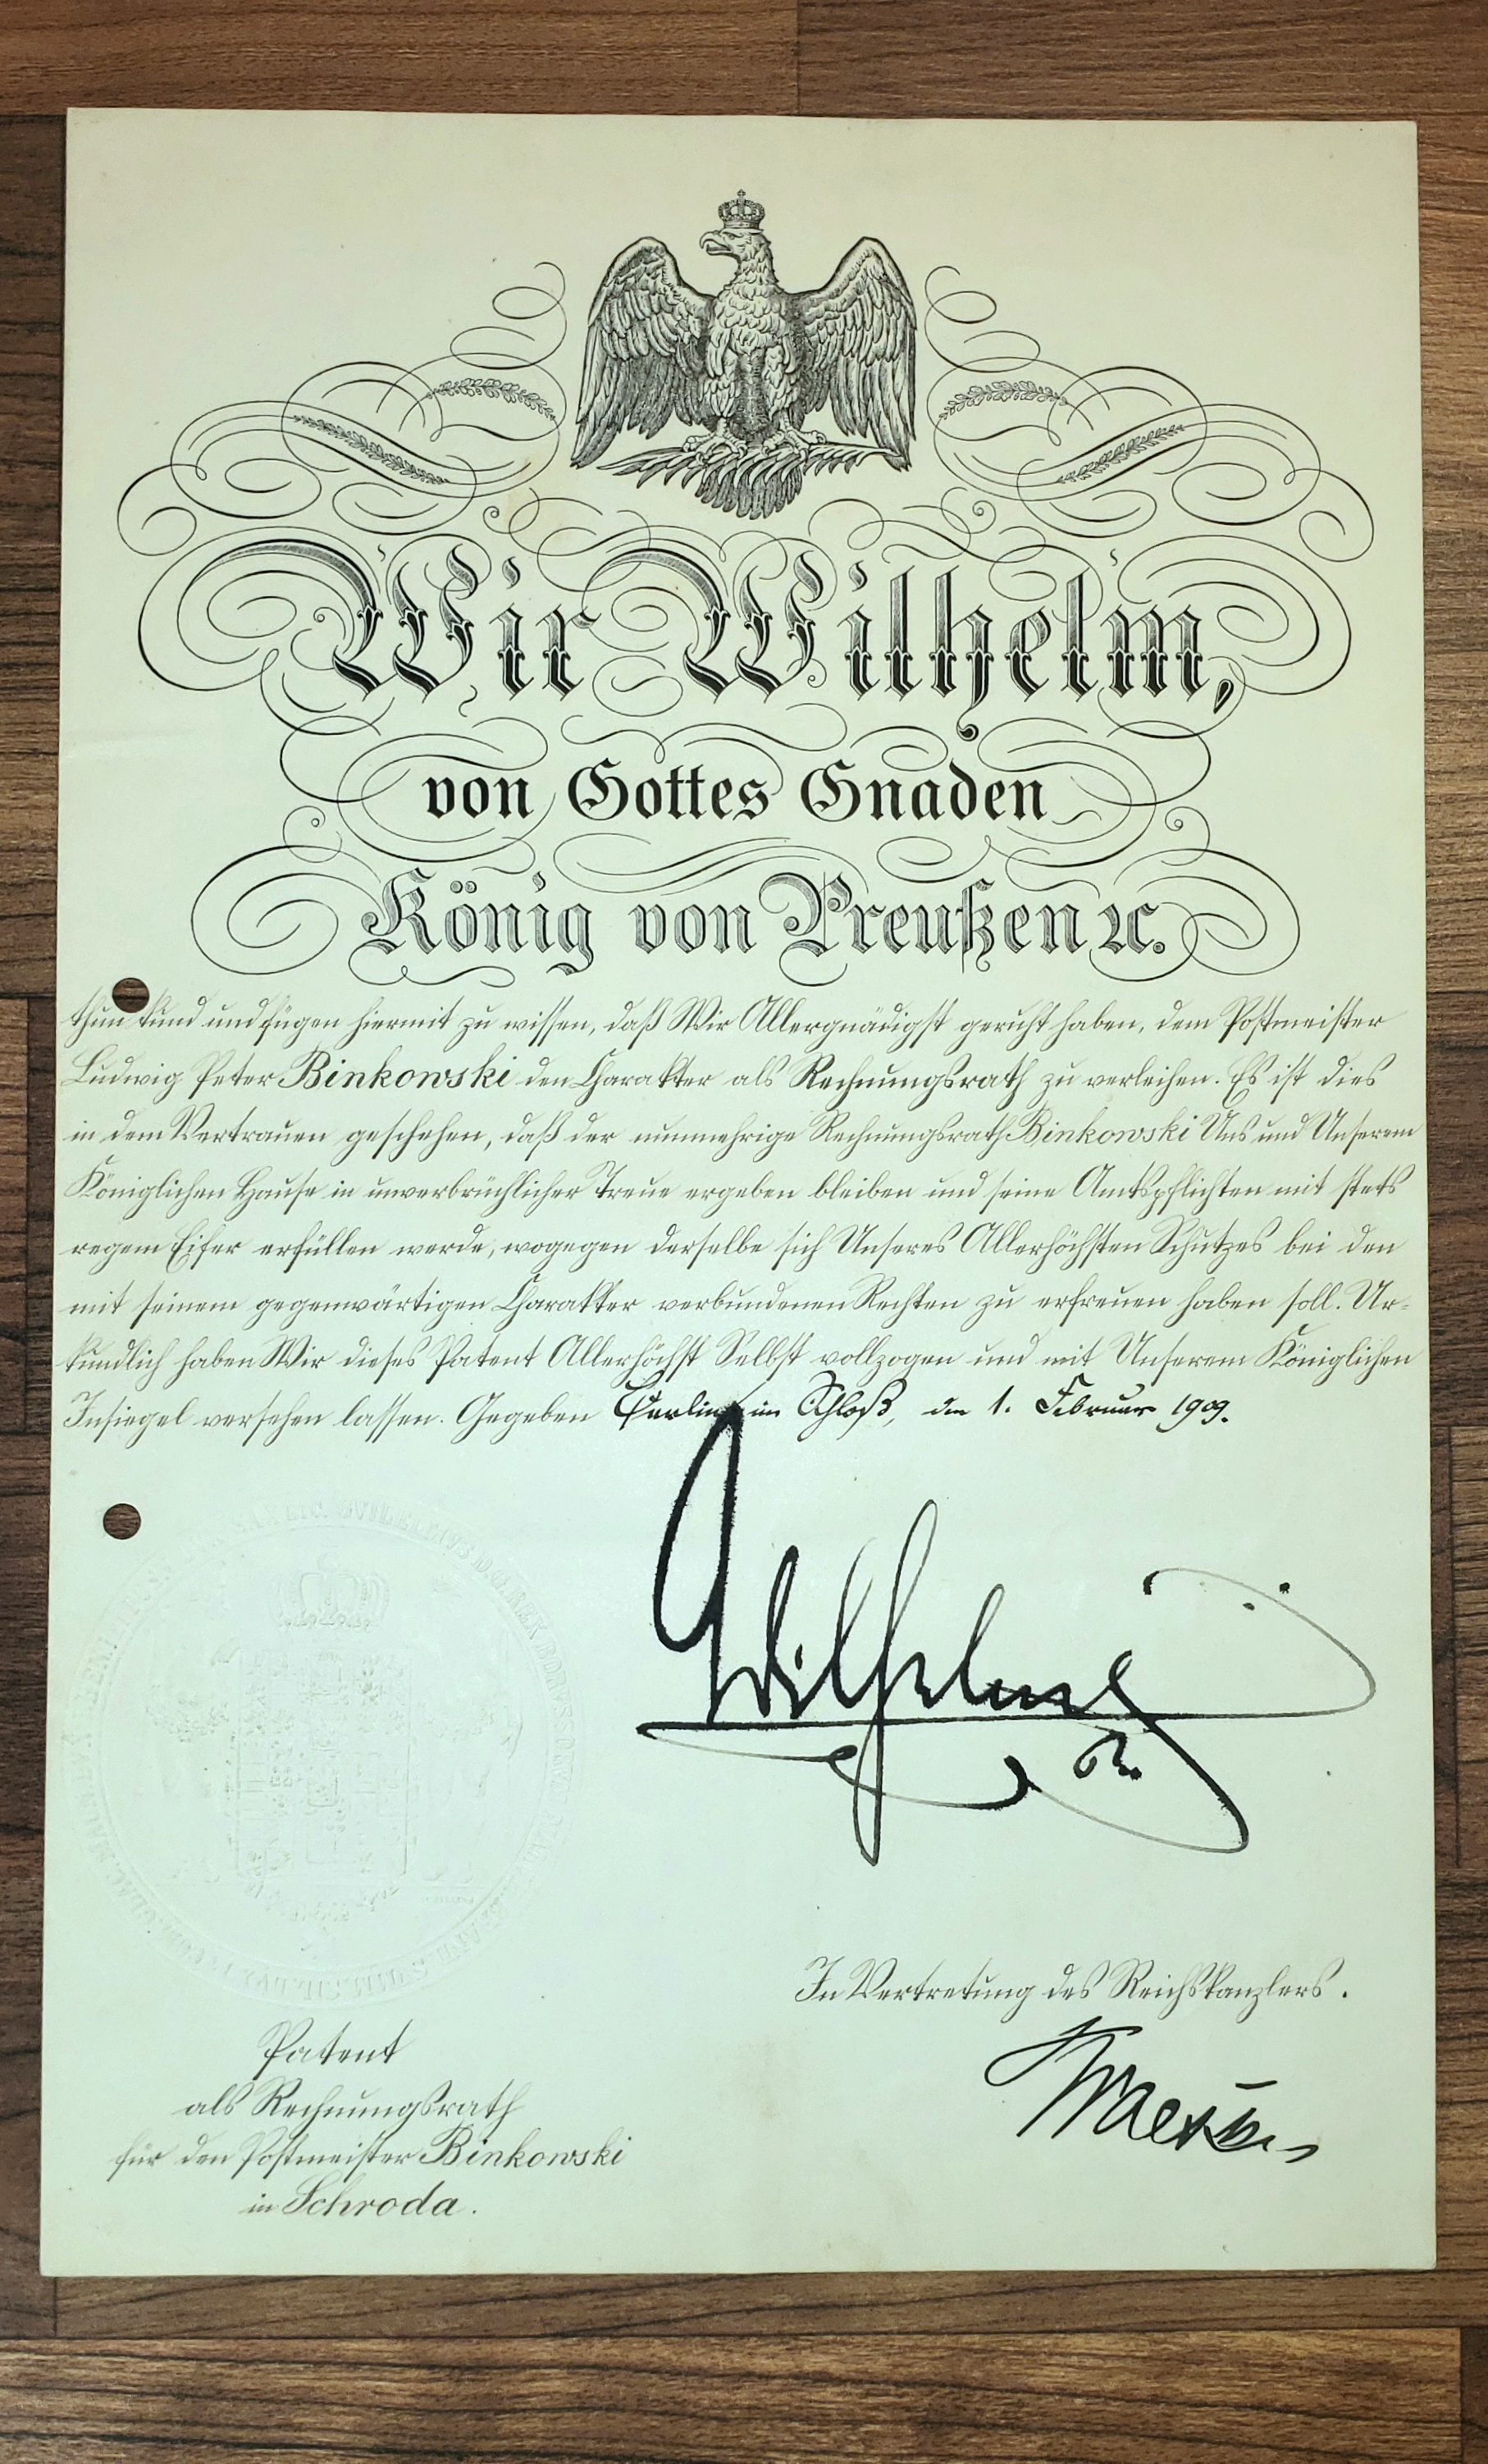 Wir Wilhelm,
von Gottes Gnaden
König von Preußen ꝛc.
thun kund und fügen hiermit zu wissen, daß Wir Allergnädigst geruht haben, dem Postmeister
Ludwig Peter Binkowski den Charakter als Rechnungsrath zu verleihen. Es ist dies
in dem Vertrauen geschehen, daß der nunmehrige Rechnungsrath Binkowski Uns und Unserem
Königlichen Hause in unverbrüchlicher Treue ergeben bleiben und seine Amtspflichten mit stets
regem Eifer erfüllen werde, wogegen derselbe sich Unseres Allerhöchsten Schutzes bei den
mit seinem gegenwärtigen Charakter verbundenen Rechten zu erfreuen haben soll. Ur-
kundlich haben Wir dieses Patent Allerhöchst Selbst vollzogen und mit Unserem Königlichen
Insiegel versehen lassen. Gegeben Berlin im Schloß, den 1. Februar 1909.
Wilhelm
R
In Vertretung des Reichskanzlers.
Patent
als Rechnungsrath
für den Postmeister Binkowski
in Schroda.